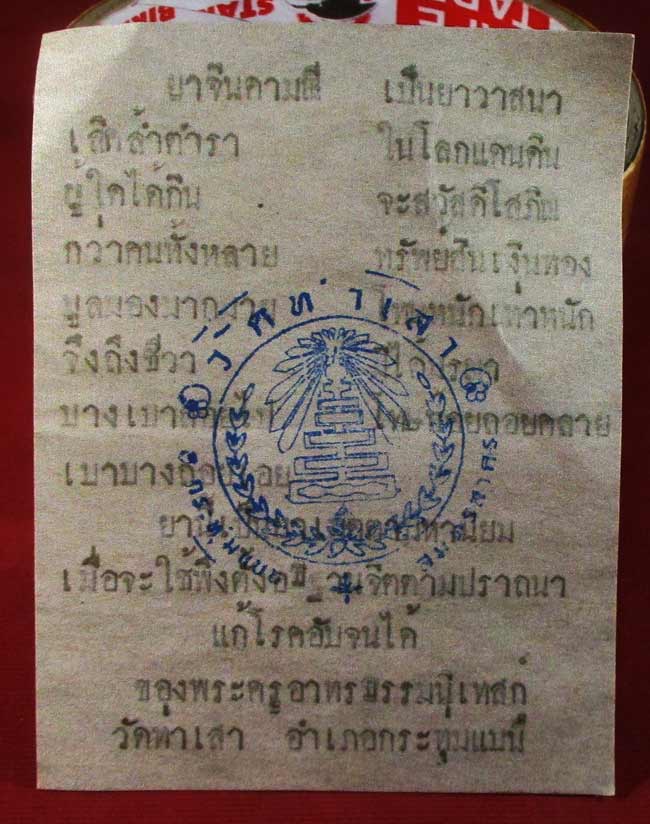 ยาจินดามณี เป็นยาวาสนา
เลิศล้ำตำรา ในโลกแดนดิน
ผู้ใดได้กิน จะสวัสดิโสภิณ
กว่าคนทั้งหลาย ทรัพย์สินเงินทอง
พูลมองมากมาย โทษหนักเท่าหนัก
จึงถึงชีวา
บางเบา โทษน้อยถอยคลาย
เบาบาง
ยานี้ มหานิยม
เมื่อจะใช้พึงตั้งอธิฐานจิตตามปราถนา
แก้โรคอับจนได้
ของพระครูอาทรธรรมนิเทสก์
วัดท่าเสา อำเภอกระทุ่มแบน
วัดท่าเสา
อ.กระทุ่มแบน
จ.สมุทรสาคร
STAR